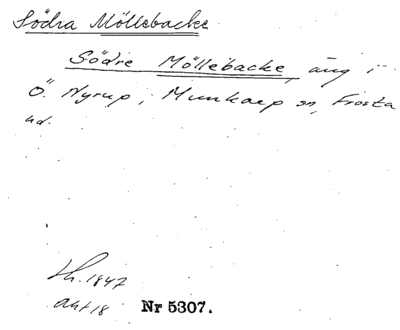 Södra Möllebacke
Södre Möllebacke, äng i
Ö. Nyrup, Munkarp sn, Frosta
hd.
Lh. 1847
akt 18 Nr 5307.